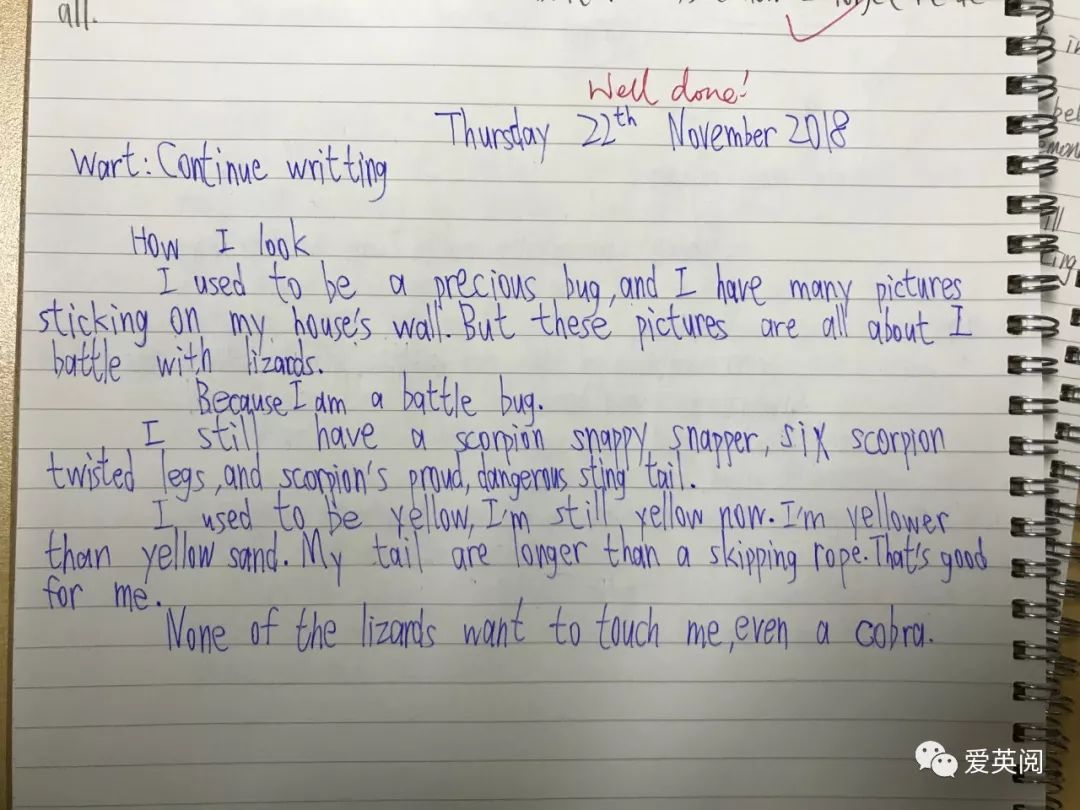 all.
Well done!
Thursday 22th November 2018
Wart: Continue writting
How I look
I used to be a precious bug, and I have many pictures
sticking on my house's wall. But these pictures are all about I
battle with lizards.
Because I am a battle bug.
I still have a scorpion snappy snapper, six scorpion
twisted legs, and scorpion's proud, dangerous sting tail.
I used to be yellow, I'm still yellow now. I'm yellower
than yellow sand. My tail are longer than a skipping rope. That's good
for me.
None of the lizards want to touch me, even a cobra.
爱英阅